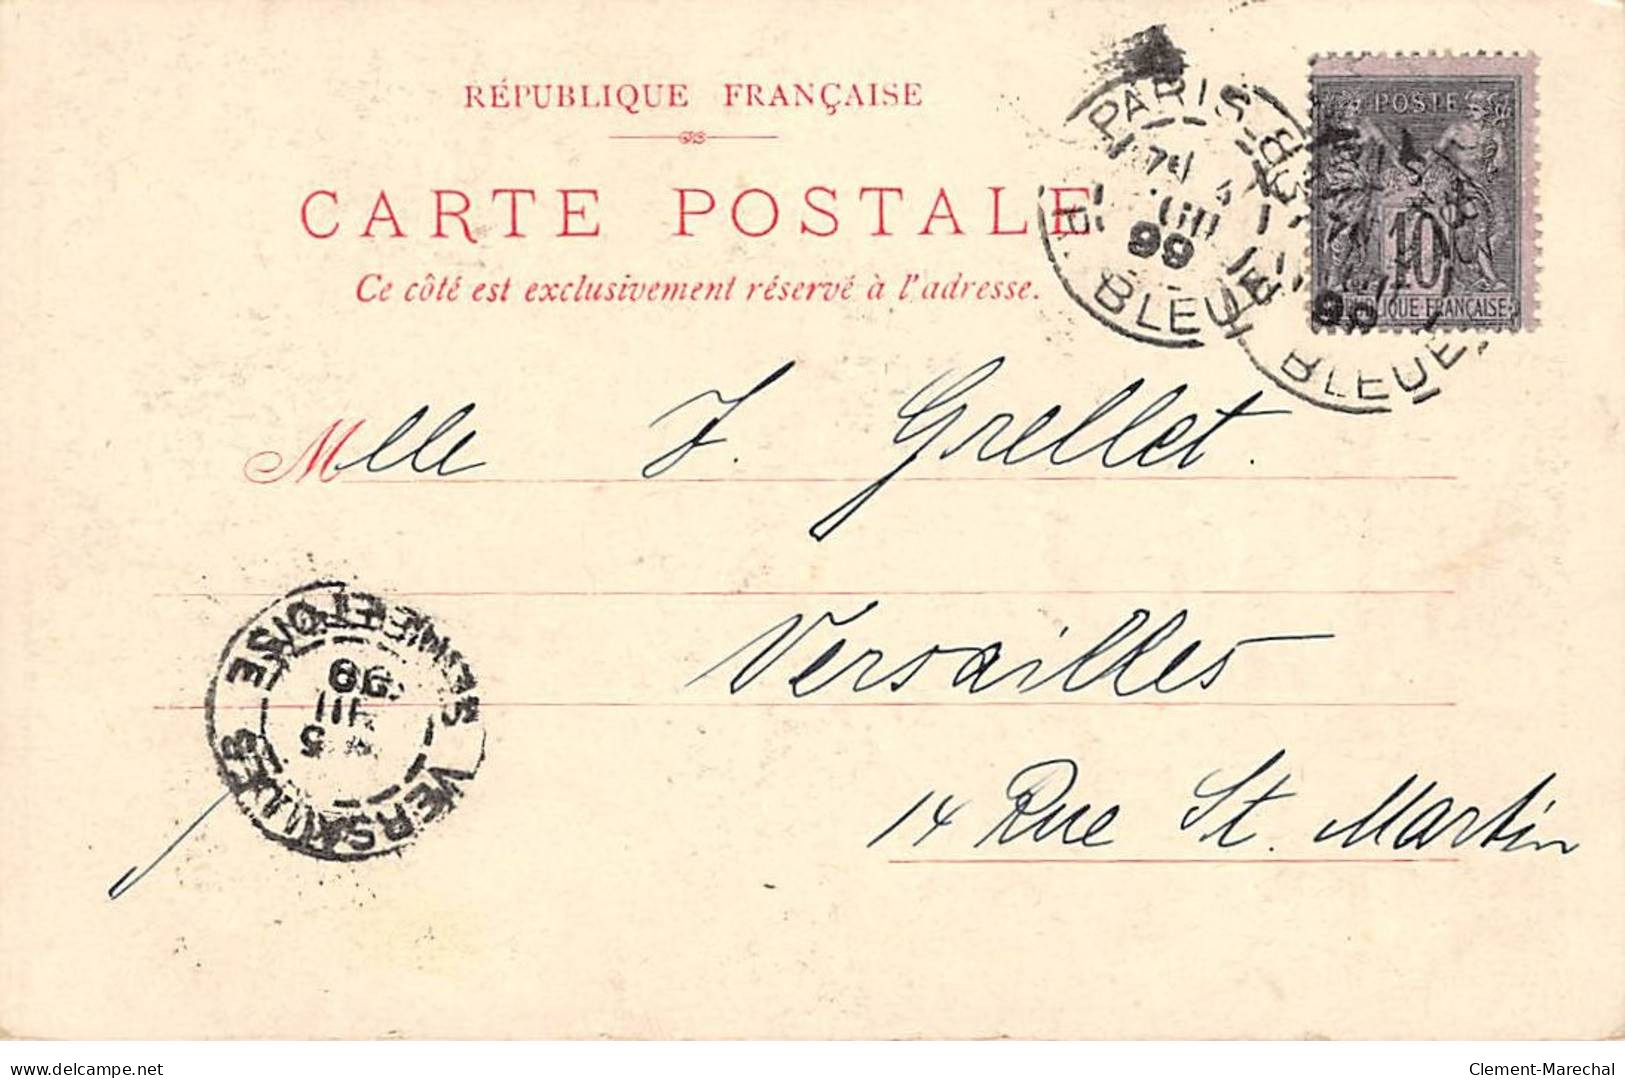 RÉPUBLIQUE FRANÇAISE
CARTE POSTALE
Ce côté est exclusivement réservé à l'adresse.
PARIS
99
BLEUE
BLEUE
POSTE
10
RÉPUBLIQUE FRANÇAISE
Mlle J. Grellet.
Versailles
14 Rue St. Martin
VERSAILLES
SEINE ET OISE
5
99
delcampe.net
Clement-Marechal